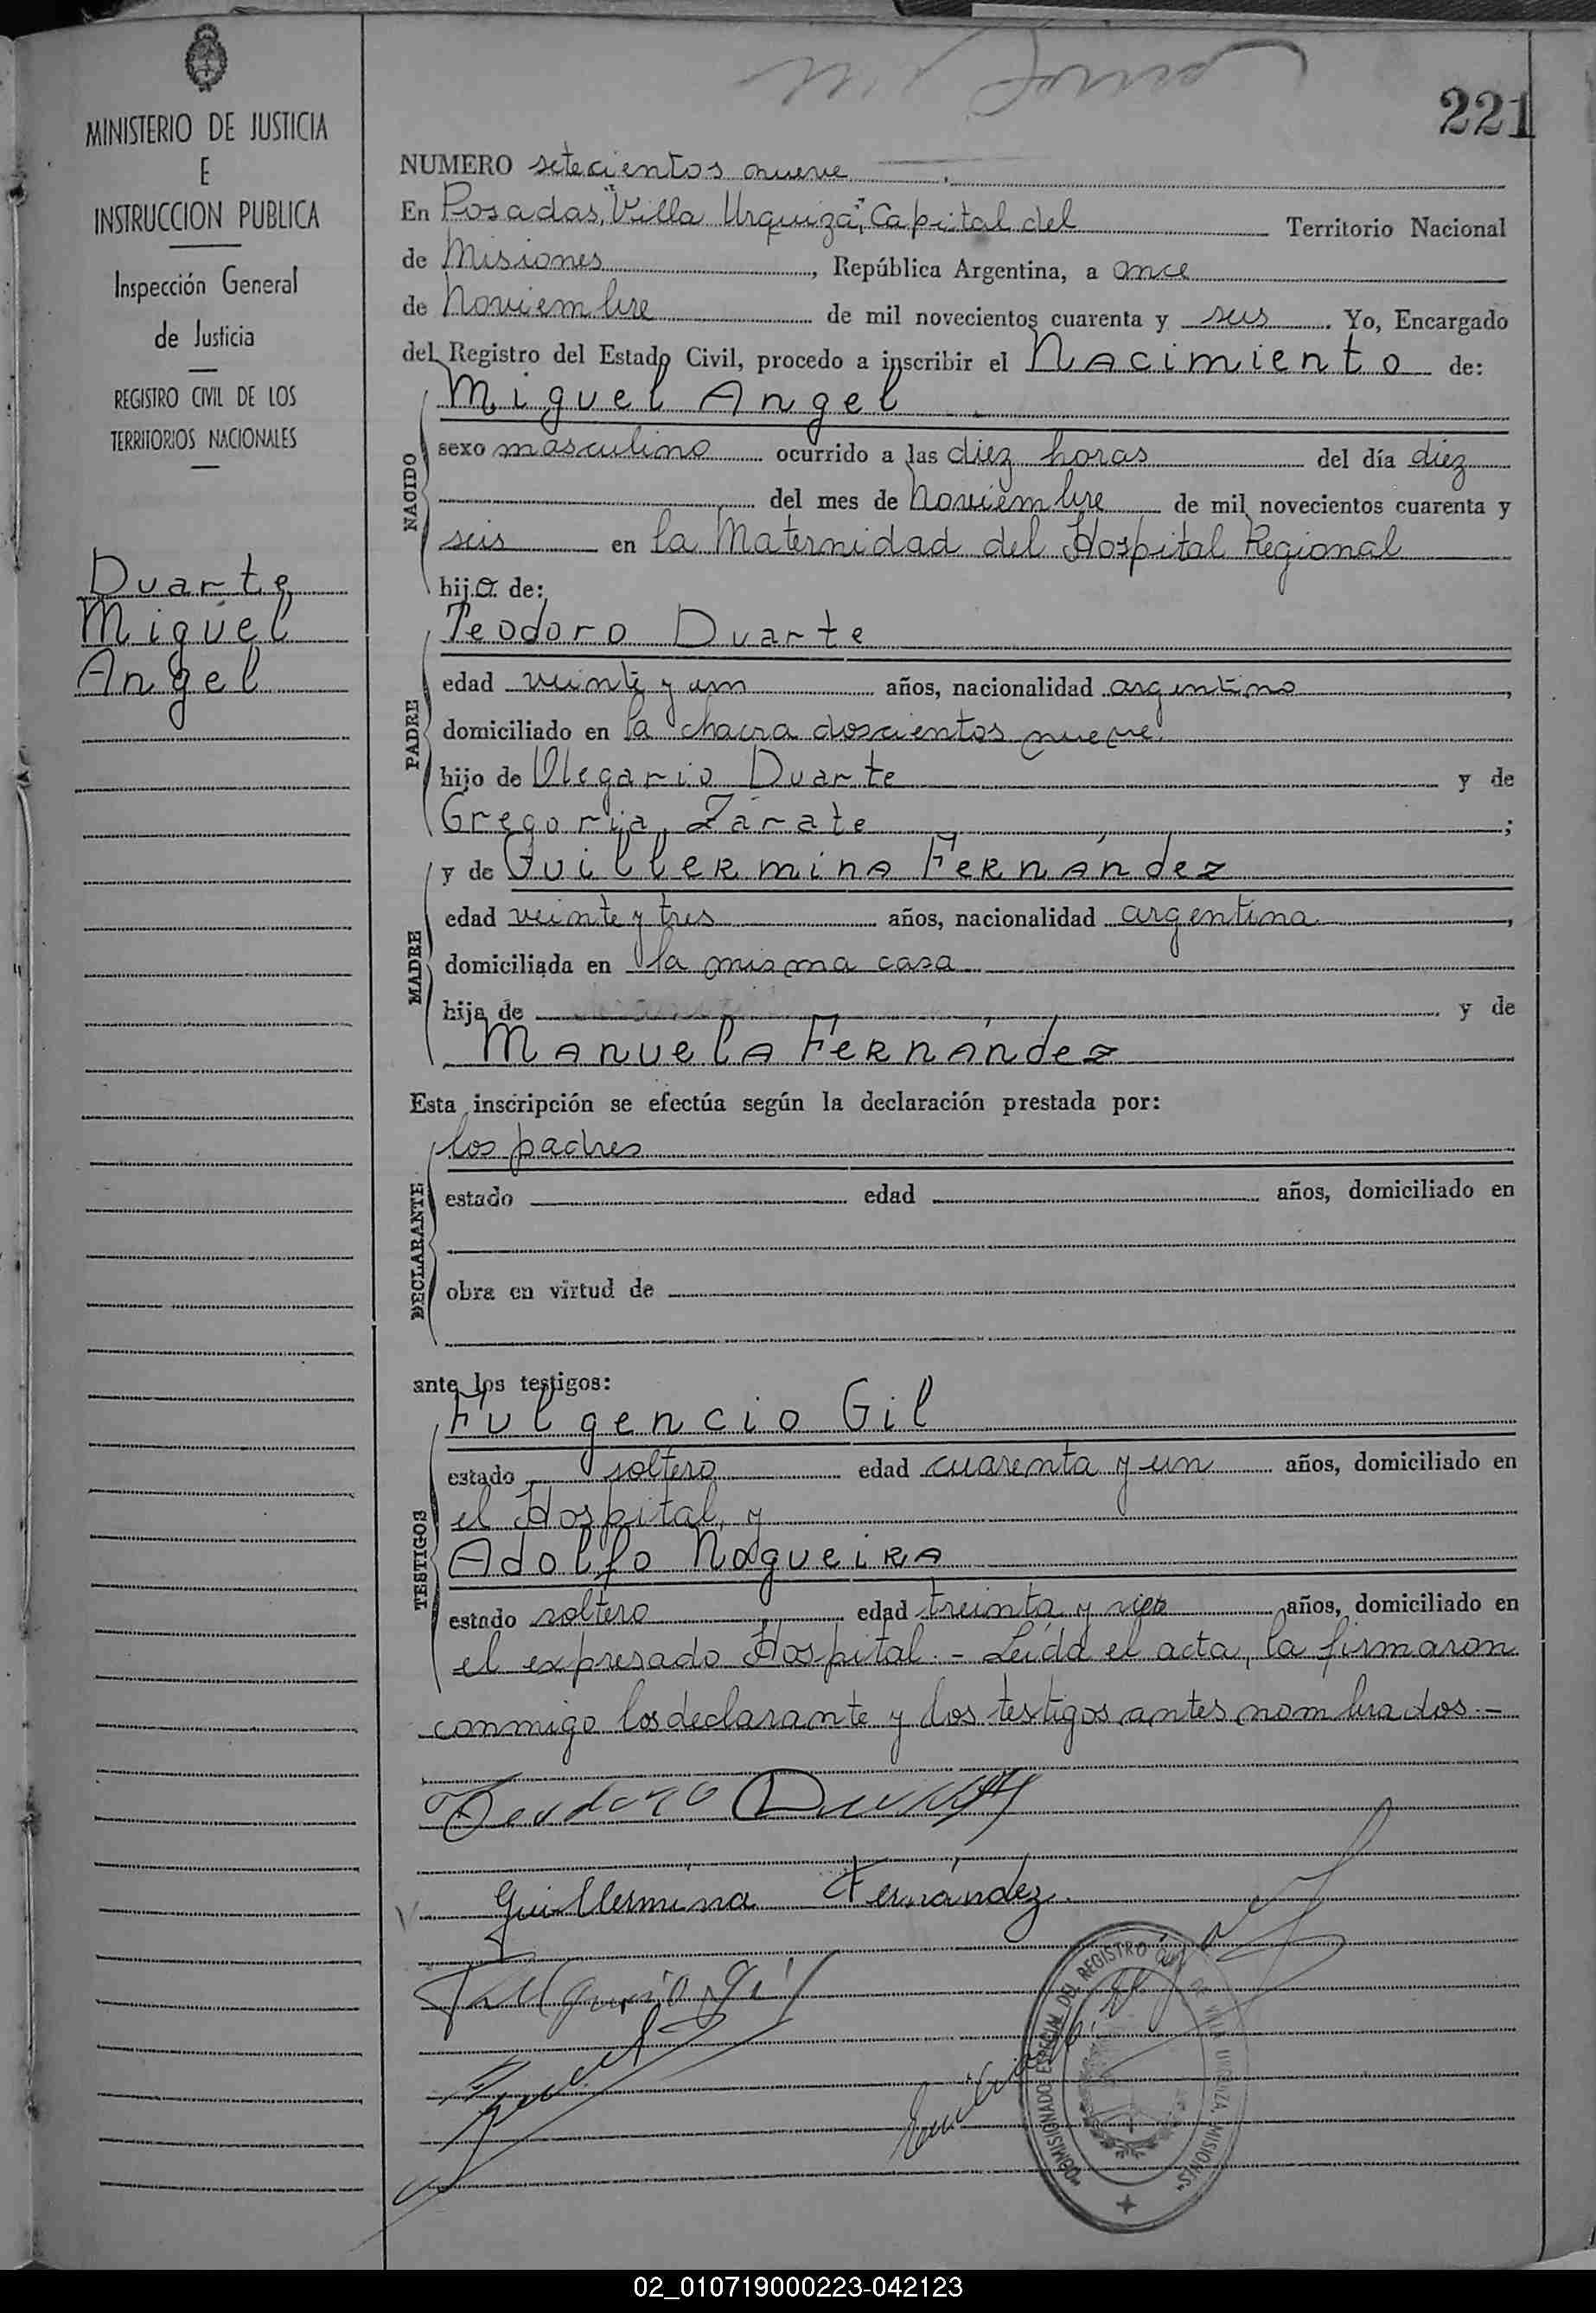 221
MINISTERIO DE JUSTICIA
E
INSTRUCCION PUBLICA
Inspección General
de Justicia
REGISTRO CIVIL DE LOS
TERRITORIOS NACIONALES
Duarte
Miguel
Angel
NUMERO setecientos nueve
En Posadas, "Villa Urquiza", Capital del Territorio Nacional
de Misiones, República Argentina, a once
de Noviembre de mil novecientos cuarenta y seis. Yo, Encargado
del Registro del Estado Civil, procedo a inscribir el Nacimiento de:
NACIDO
Miguel Angel
sexo masculino ocurrido a las diez horas del día diez
del mes de Noviembre de mil novecientos cuarenta y
seis en la Maternidad del Hospital Regional
hijo de:
PADRE
Teodoro Duarte
edad veinte y un años, nacionalidad argentino,
domiciliado en la chacra doscientos nueve
hijo de Olegario Duarte y de
Gregoria Zárate;
MADRE
y de Guillermina Fernández
edad veinte y tres años, nacionalidad argentina,
domiciliada en la misma casa
hija de y de
Manuela Fernández
Esta inscripción se efectúa según la declaración prestada por:
DECLARANTE
los padres
estado edad años, domiciliado en
obra en virtud de
ante los testigos:
TESTIGOS
Fulgencio Gil
estado soltero edad cuarenta y un años, domiciliado en
el Hospital, y
Adolfo Nogueira
estado soltero edad treinta y años, domiciliado en
el expresado Hospital.- Leída el acta, la firmaron
conmigo los declarante y los testigos antes nombrados.-
Teodoro Duarte
Guillermina Fernández
Fulgencio Gil
COMISIONADO ESPECIAL DEL REGISTRO CIVIL DE VILLA URQUIZA, MISIONES
02_010719000223-042123